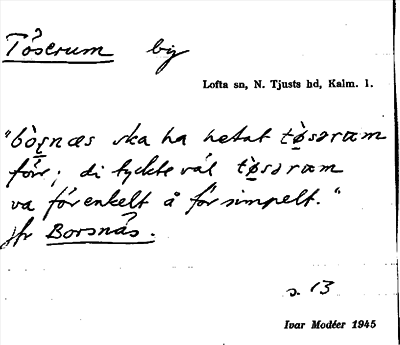 Töserum by
Lofta sn, N. Tjusts hd, Kalm. l.
"bòṣnæs ska ha hetat tø̀səræm
före; di tyckte väl tø̀səræm
va för enkelt å för simpelt."
Jfr Borsnäs.
s. 13
Ivar Modéer 1945